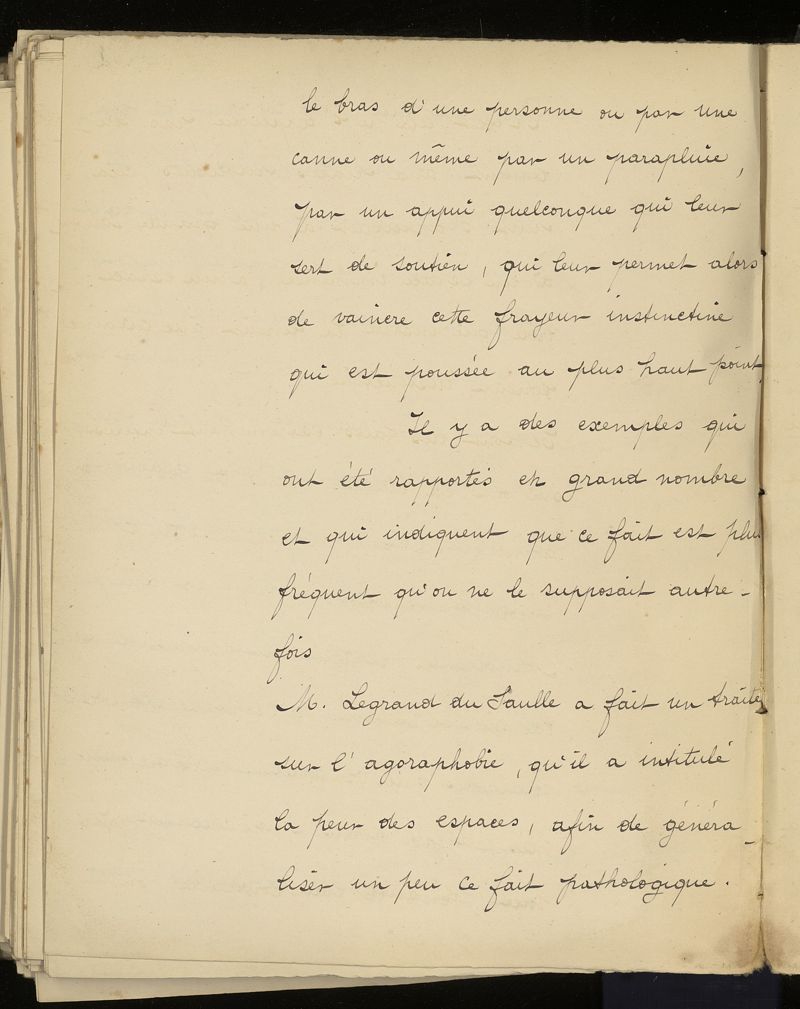 le bras d'une personne ou par une
canne ou même par un parapluie,
par un appui quelconque qui leur
sert de soutien, qui leur permet alors
de vaincre cette frayeur instinctive
qui est poussée au plus haut point.
Il y a des exemples qui
ont été rapportés en grand nombre
et qui indiquent que ce fait est plus
fréquent qu'on ne le supposait autre-
fois
M. Legrand du Saulle a fait un traité
sur l'agoraphobie, qu'il a intitulé
la peur des espaces, afin de généra-
liser un peu ce fait pathologique.